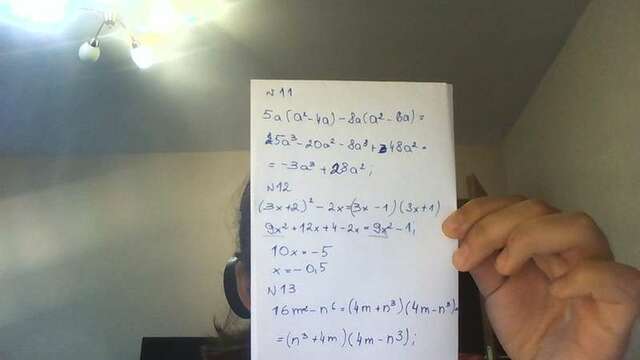 N11
5a(a²-4a)-8a(a²-6a)=
25a³-20a²-8a³+48a²=
=-3a³+28a²;
N12
(3x+2)²-2x=(3x-1)(3x+1)
9x²+12x+4-2x=9x²-1,
10x=-5
x=-0,5
N13
16m²-n⁶=(4m+n³)(4m-n³)=
=(n³+4m)(4m-n³);